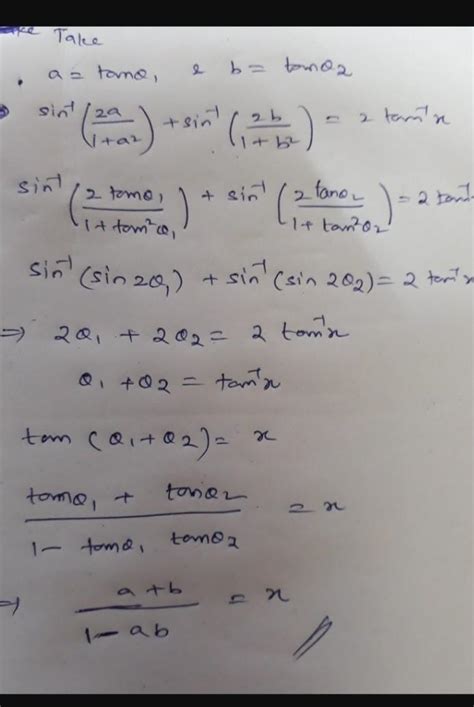 Take Take
a = tanθ₁ & b = tanθ₂
sin⁻¹(2a/(1+a²)) + sin⁻¹(2b/(1+b²)) = 2 tan⁻¹x
sin⁻¹(2 tanθ₁/(1+tan²θ₁)) + sin⁻¹(2 tanθ₂/(1+tan²θ₂)) = 2 tan⁻¹
sin⁻¹(sin 2θ₁) + sin⁻¹(sin 2θ₂) = 2 tan⁻¹x
⇒ 2θ₁ + 2θ₂ = 2 tan⁻¹x
θ₁ + θ₂ = tan⁻¹x
tan (θ₁ + θ₂) = x
(tanθ₁ + tanθ₂)/(1 - tanθ₁ tanθ₂) = x
⇒ (a + b)/(1 - ab) = x